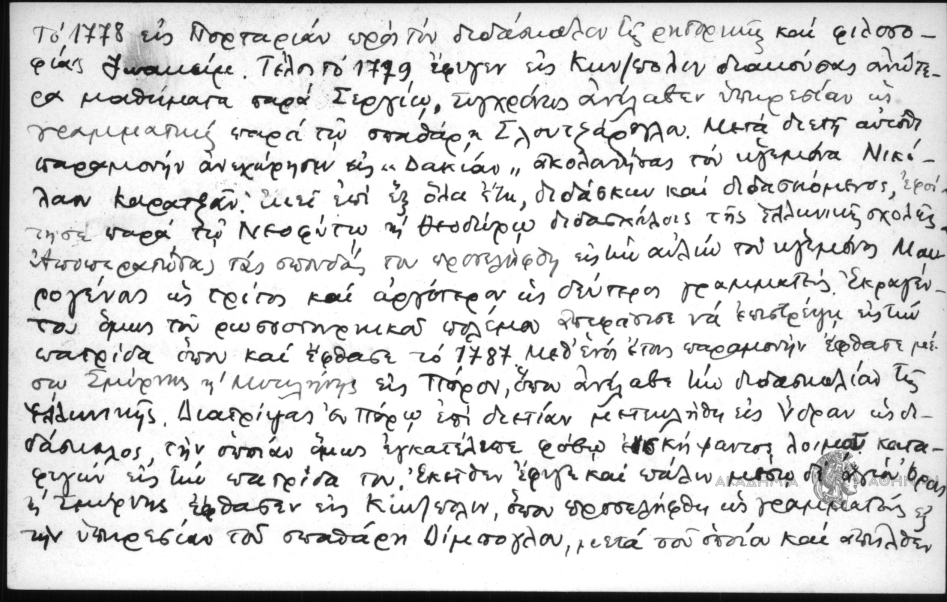 Τό 1778 εἰς Πορταριάν πρός τόν διδάσκαλον τῆς ρητορικῆς καί φιλοσο-
φίας Ἰωακείμ. Τέλος τό 1779 ἔφυγεν εἰς Κων/πολιν διακούσας ἀνώτε-
ρα μαθήματα παρά Σεργίῳ, συγχρόνως ἀνέλαβεν ὑπηρεσίαν ὡς
γραμματικός παρά τῷ σπαθάρῃ Σλουτζάρογλα. Μετά διετῆ αὐτοῦ
παραμονήν ἀνεχώρησεν εἰς "Δακίαν" ἀκολουθήσας τόν ἡγεμόνα Νικό-
λαον Καρατζᾶν. Ἐκεῖ ἐπί ἕξ ὅλα ἔτη, διδάσκων καί διδασκόμενος, ἐφοί-
τησε παρά τῷ Νεοφύτῳ ἤ Θεοδώρῳ διδασκάλοις τῆς ἑλληνικῆς σχολῆς
Ἀποπερατώσας τάς σπουδάς του προσελήφθη εἰς τήν αὐλήν τοῦ ἡγεμόνος Μαυ-
ρογένους ὡς τρίτος καί ἀργότερον ὡς δεύτερος γραμματεύς. Ἐκραγέν-
του ὅμως τοῦ ρωσοτουρκικοῦ πολέμου ἀπεφάσισε νά ἐπιστρέψῃ εἰς τήν
πατρίδα ὅπου καί ἔφθασε τό 1787 Μεθ' ἑνός ἔτους παραμονήν ἔφθασε μέ-
σω Σμύρνης ἤ Μυτιλήνης εἰς Πόρον, ὅπου ἀνέλαβε τήν διδασκαλίαν τῆς
Ἑλληνικῆς. Διατρίψας ἐν Πόρῳ ἐπί διετίαν μετεκλήθη εἰς Ὕδραν ὡς δι-
δάσκαλος, τήν ὁποίαν ὅμως ἐγκατέλειπε φόβῳ ἐνσκήψαντος λοιμοῦ κατα-
φυγών εἰς τήν πατρίδα του. Ἐκεῖθεν ἔφυγε καί πάλιν μέσω Ἁγίου Ὄρους
ἤ Σμύρνης ἔφθασεν εἰς Κων/πολιν, ὅπου προσελήφθη ὡς γραμματεύς εἰς
τήν ὑπηρεσίαν τοῦ σπαθάρη Δίμπογλου, μετά τοῦ ὁποίου καί ἀπῆλθεν
ΑΚΑΔΗΜΙΑ ΑΘΗΝΩΝ